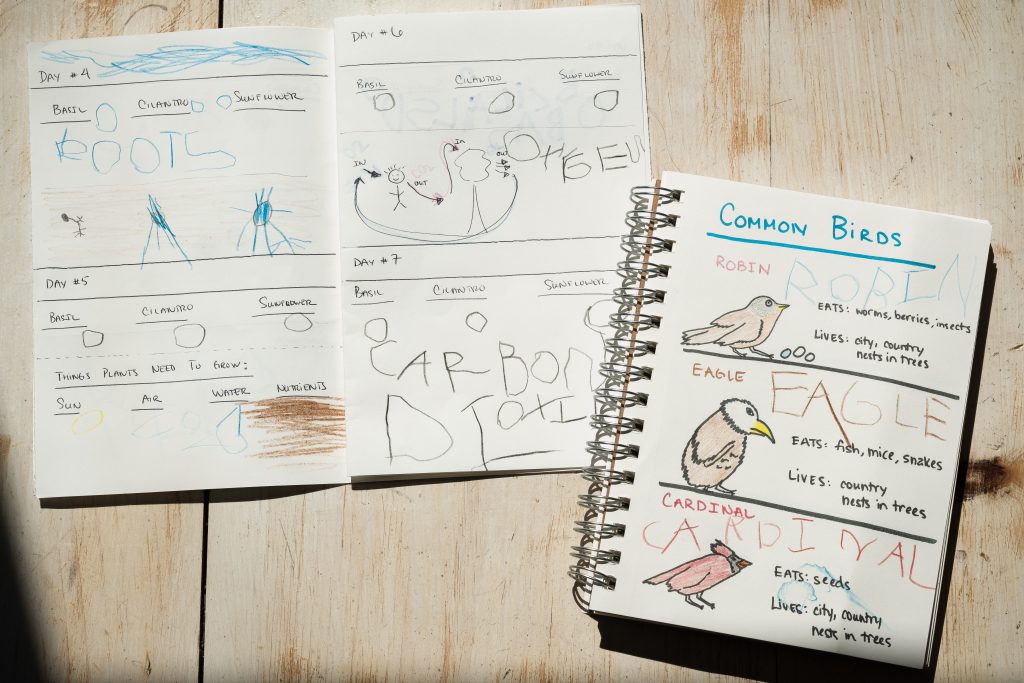 DAY #4
BASIL CILANTRO SUNFLOWER
ROOTS
DAY #5
BASIL CILANTRO SUNFLOWER
THINGS PLANTS NEED TO GROW:
SUN AIR WATER NUTRIENTS
DAY #6
BASIL CILANTRO SUNFLOWER
IN OUT IN OUT
DAY #7
BASIL CILANTRO SUNFLOWER
CARBON
DIOXI
COMMON BIRDS
ROBIN ROBIN
EATS: worms, berries, insects
LIVES: city, country
nests in trees
EAGLE EAGLE
EATS: fish, mice, snakes
LIVES: country
nests in trees
CARDINAL
CARDINAL
EATS: seeds
LIVES: city, country
nests in trees